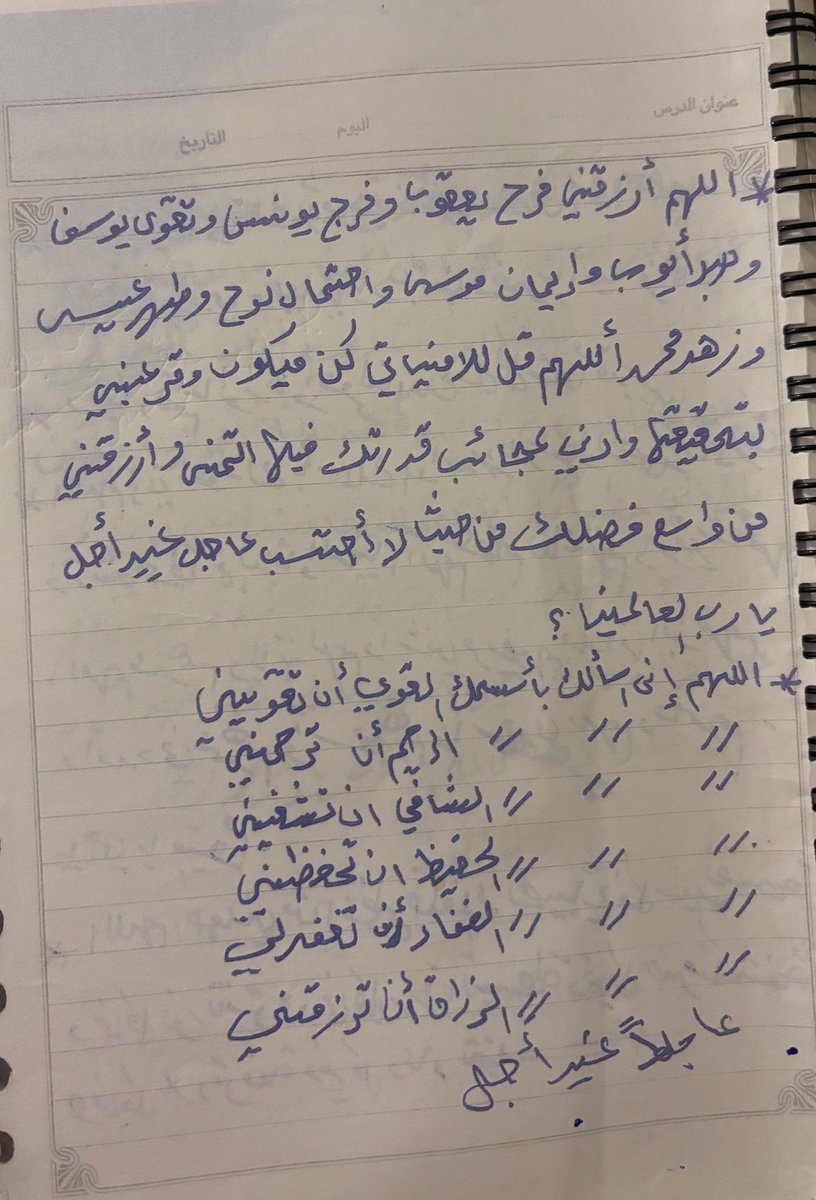 عنوان الدرس اليوم التاريخ
* اللهم أرزقني فرح يعقوب وفرج يونس وتقوى يوسف
وصبر أيوب وإيمان موسى واحتمال نوح وطهر عيسى
وزهد محمد أللهم قل للامنياتي كن فيكون وقر عيني
بتحقيقها وارني عجائب قدرتك فيها اتمنى وأرزقني
من واسع فضلك من حيث لا أحتسب عاجل غير أجل
يارب العالمين ؟
* اللهم إني اسألك بأسمك القوي أن تقويني
〃 〃 〃 الرحيم أن ترحمني
〃 〃 〃 الشافي ان تشفيني
〃 〃 〃 الحفيظ ان تحفظني
〃 〃 〃 الغفار أن تغفرلي
〃 〃 〃 الرزاق أن ترزقني
عاجلاً غير أجل